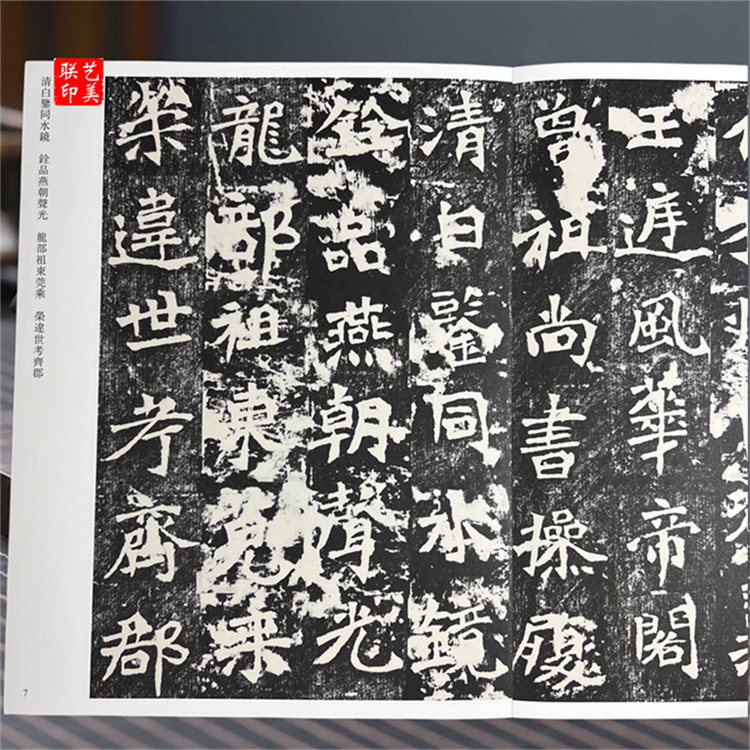 艺美
联印
王庭風華帝閣
曾祖尚書操履
清白鑒同水鏡
銓品燕朝聲光
龍部祖東莞乘
榮違世考齊郡
清白鑒同水鏡 銓品燕朝聲光 龍部祖東莞乘 榮違世考齊郡
7